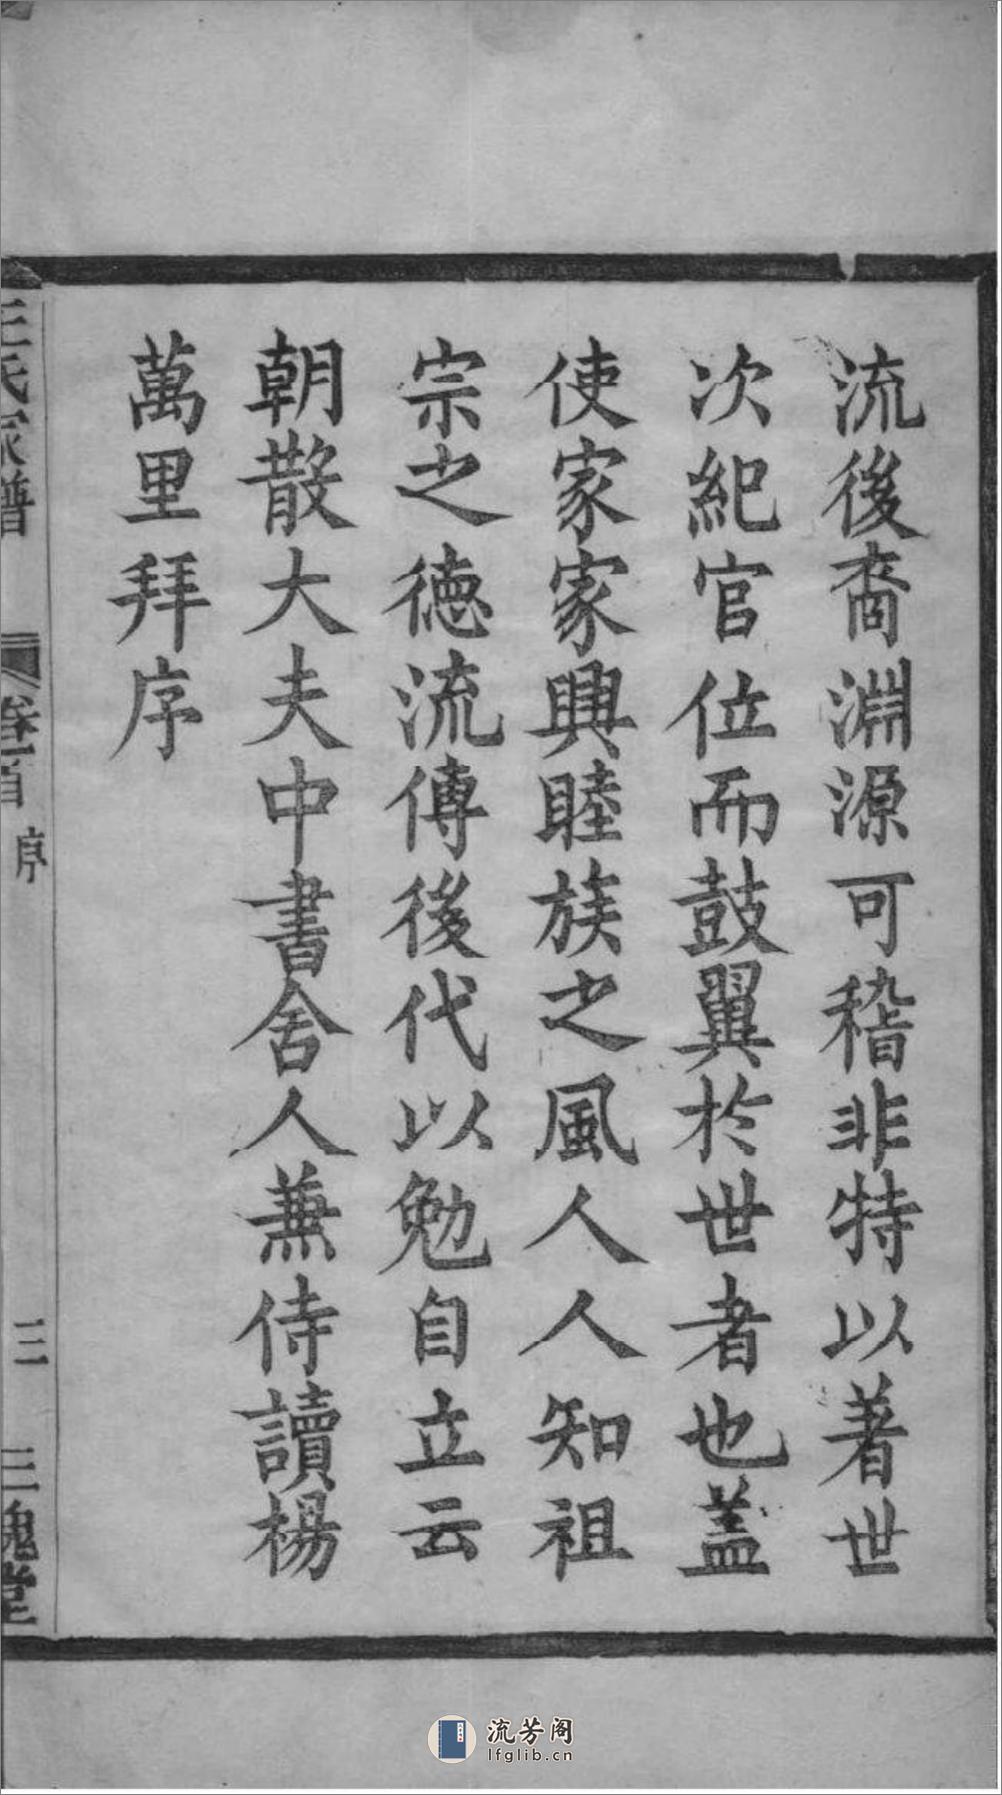 流後裔淵源可稽非特以著世
次紀官位而鼓翼於世者也蓋
使家家興睦族之風人人知祖
宗之德流傳後代以勉自立云
朝散大夫中書舍人兼侍讀楊
萬里拜序
王氏家譜
卷首
序
三
三槐堂
流芳阁
lfglib.cn